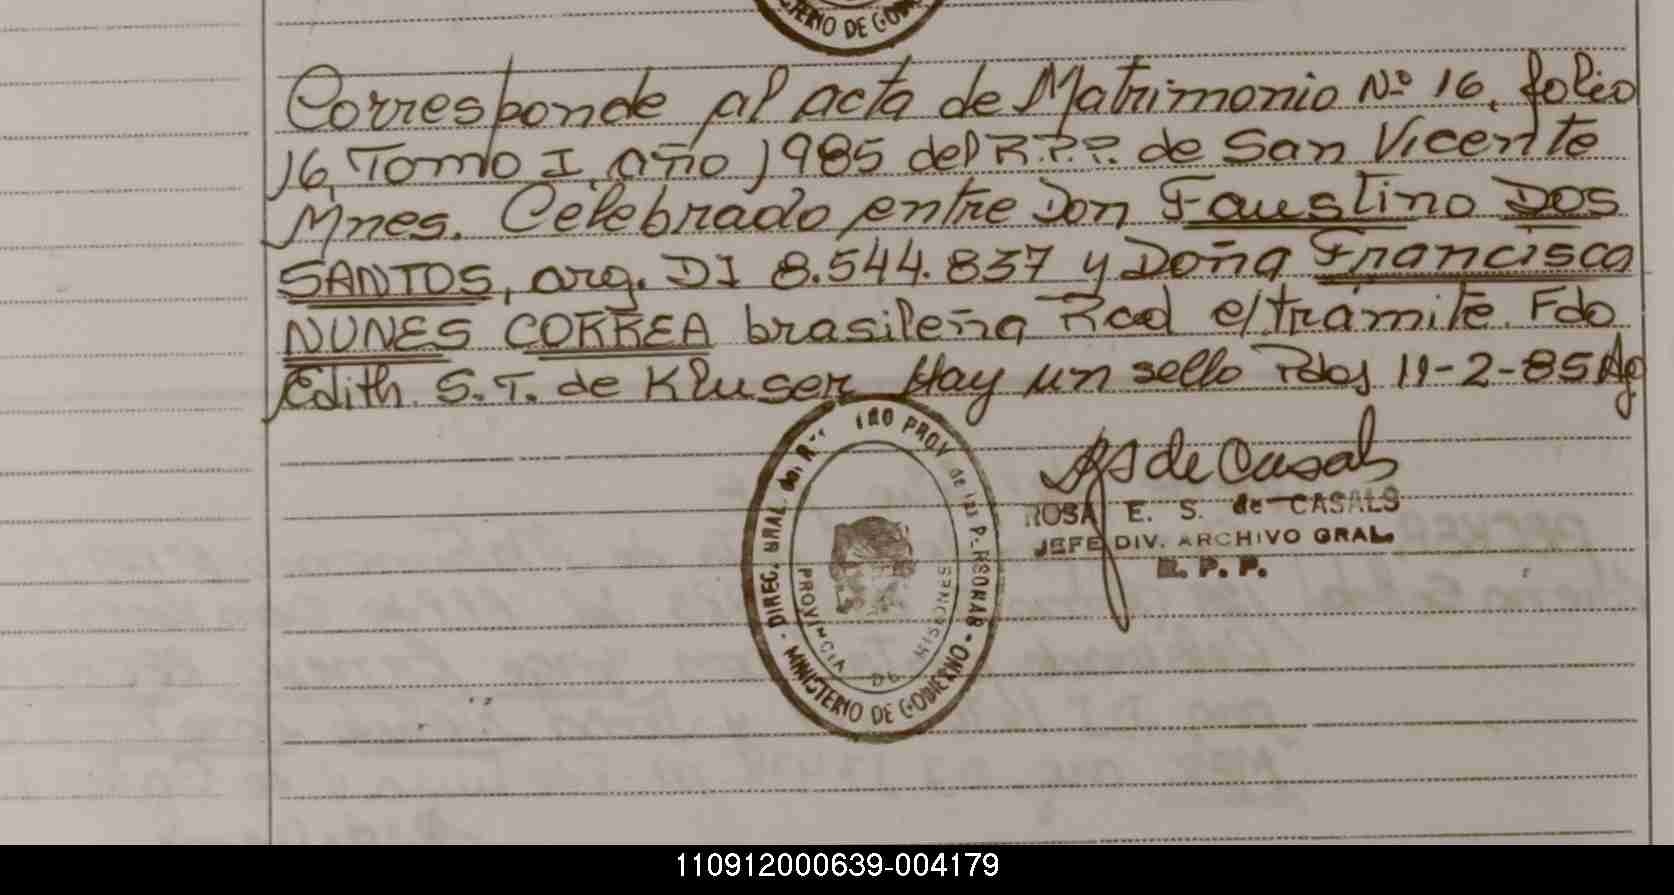 TERIO DE GOB
Corresponde al acta de Matrimonio Nº 16, folio
16, Tomo I, año 1985 del R.P.P. de San Vicente
Mnes. Celebrado entre Don Faustino DOS
SANTOS, arg. DI 8.544.837 y Doña Francisca
NUNES CORREA brasileña Rcd e/trámite. Fdo
Edith S.T. de Kluser Hay un sello Pdas 11-2-85
de Casals
ROSA E. S. de CASALS
JEFE DIV. ARCHIVO GRAL.
R. P. P.
DIREC. GRAL. del PROV de las PERSONAS
PROVINCIA DE MISIONES
MINISTERIO DE GOBIERNO
110912000639-004179